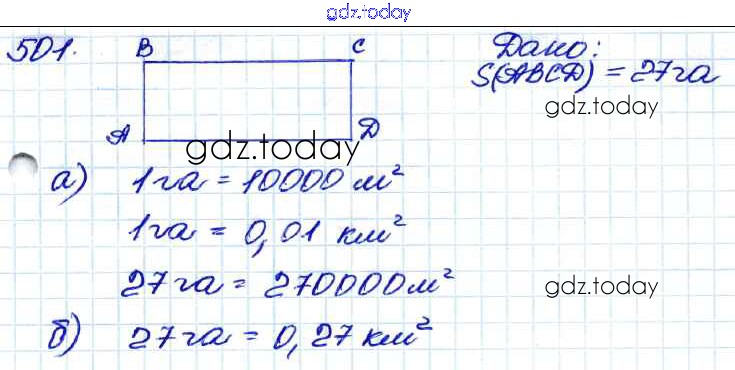 gdz.today
501.
B C
Дано:
S(ABCD) = 27 га
gdz.today
A D
gdz.today
а) 1 га = 10000 м²
1 га = 0,01 км²
27 га = 270000 м²
gdz.today
б) 27 га = 0,27 км²